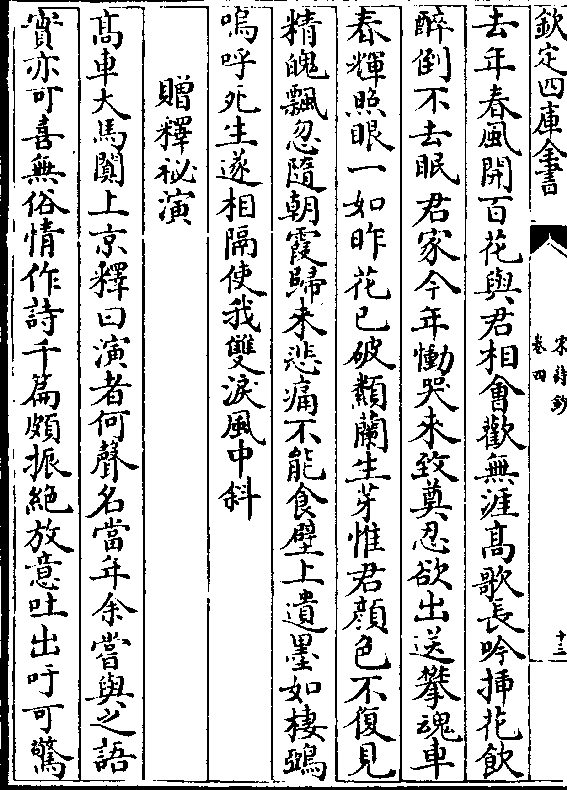 欽定四庫全書
宋詩鈔
卷四
十三
去年春風開百花與君相會歡無涯高歌長吟揷花飲
醉倒不去眠君家今年慟哭來致奠忍欲出送攀魂車
春輝照眼一如昨花已破顆蘭生芽惟君顔色不復見
精魄飄忽隨朝霞歸來悲痛不能食壁上遺墨如棲鴉
嗚呼死生遂相隔使我雙淚風中斜
贈釋祕演
髙車大馬闐上京釋曰演者何聲名當年余嘗與之語
實亦可喜無俗情作詩千篇頗振絶放意吐出吁可驚